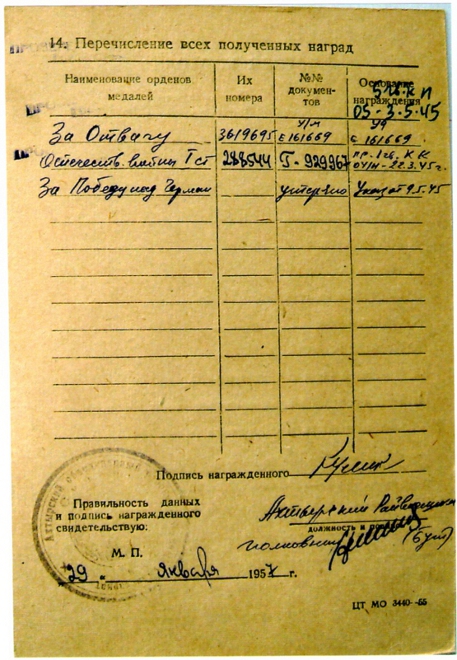 14. Перечисление всех полученных наград
Наименование орденов медалей
Их номера
№№ документов
Основание награждения
05-3.5.45
За Отвагу 3619695 У/л Е 161669 Уд Е 161669
Отечеств. войны I ст 288544 Г-929967 22.3.45г.
За Победу над Герман утеряно Указ от 9.5.45
Подпись награжденного Кулик
Правильность данных
и подпись награжденного
свидетельствую:
Ахтырский Райвоенком
должность и
полковник
М. П.
"29" января 1957 г.
ЦТ МО 3440--55